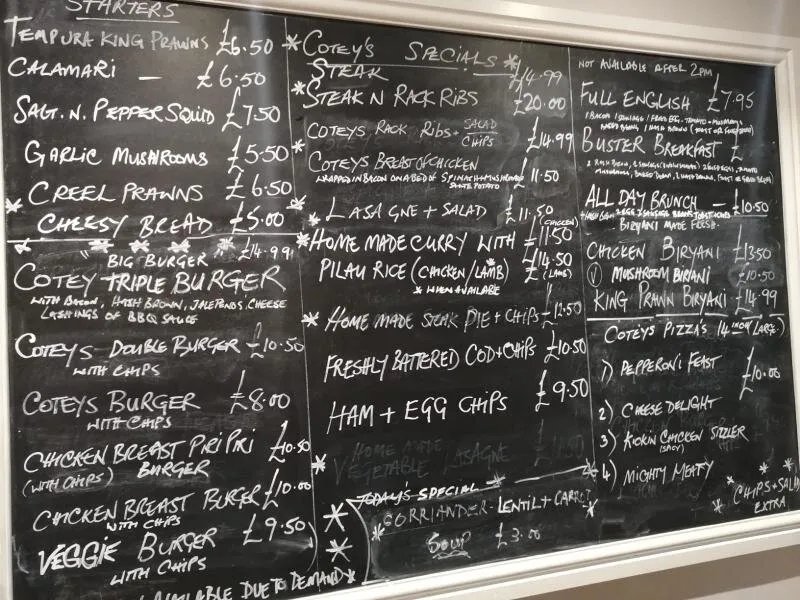 STARTERS
TEMPURA KING PRAWNS £6.50
CALAMARI — £6.50
SALT.N.PEPPER SQUID £7.50
GARLIC MUSHROOMS £5.50
CREEL PRAWNS £6.50
CHEESY BREAD £5.00
BIG BURGER £14.99
COTEY TRIPLE BURGER
WITH BACON, HASH BROWN, JALEPENOS, CHEESE
LASHINGS OF BBQ SAUCE
COTEYS DOUBLE BURGER £10.50
WITH CHIPS
COTEYS BURGER £8.00
WITH CHIPS
CHICKEN BREAST PIRI PIRI £10.50
(WITH CHIPS) BURGER
CHICKEN BREAST BURGER £10.00
WITH CHIPS
VEGGIE BURGER £9.50
WITH CHIPS
AVAILABLE DUE TO DEMAND *
* COTEY'S SPECIALS *
STEAK £14.99
* STEAK N RACK RIBS £20.00
COTEYS RACK RIBS + SALAD CHIPS £14.99
COTEYS BREAST OF CHICKEN
WRAPPED IN BACON ON A BED OF SPINACH + MUSHROOMS £11.50
SAUTE POTATO
* LASAGNE + SALAD £11.50
(CHICKEN)
* HOME MADE CURRY WITH £11.50
£14.50
PILAU RICE (CHICKEN/LAMB) £ (LAMB)
* WHEN AVAILABLE
* HOME MADE STEAK PIE + CHIPS £12.50
FRESHLY BATTERED COD + CHIPS £10.50
HAM + EGG CHIPS £9.50
HOME MADE
VEGETABLE LASAGNE
TODAY'S SPECIAL
CORRIANDER. LENTIL + CARROT
SOUP £3.00
NOT AVAILABLE AFTER 2PM
FULL ENGLISH £7.95
1 BACON 1 SAUSAGE 1 FRIED EGG. TOMATO + MUSHROOM
BAKED BEANS, 1 HASH BROWN (TOAST OR FRIED BREAD)
BUSTER BREAKFAST £
ALL DAY BRUNCH — £10.50
BIRYANI MADE FRESH.
CHICKEN BIRYANI £13.50
(V) MUSHROOM BIRIANI £10.50
KING PRAWN BIRYANI £14.99
COTEYS PIZZA'S 14 INCH (LARGE)
1) PEPPERONI FEAST £10.00
2) CHEESE DELIGHT
3) KICKIN CHICKEN SIZZLER
(SPICY)
4) MIGHTY MEATY
CHIPS + SALAD
EXTRA